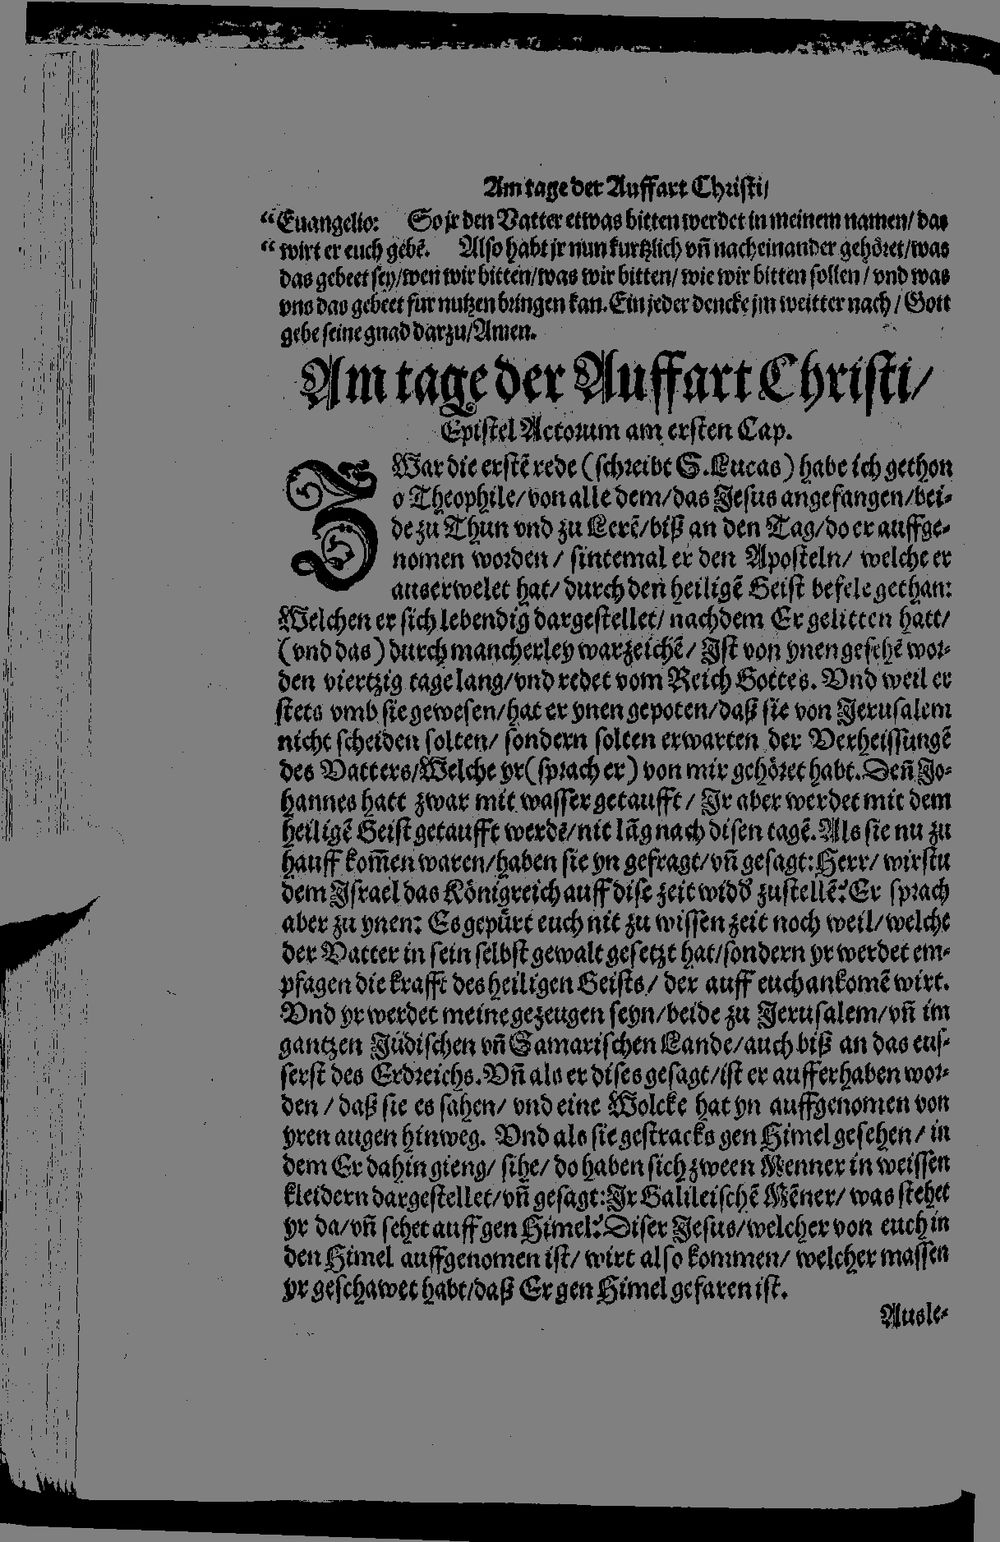 Am tage der Auffart Christi/
“Euangelio: So jr den Vatter etwas bitten werdet in meinem namen/ das
“ wirt er euch gebē. Also habt jr nun kurtzlich vñ nacheinander gehöret/was
das gebeet sey/wen wir bitten/was wir bitten/ wie wir bitten sollen / vnd was
vns das gebeet fur nutzen bringen kan. Ein jeder dencke jm weitter nach / Gott
gebe seine gnad darzu/Amen.
Am tage der Auffart Christi/
Epistel Actorum am ersten Cap.
ZWar die erstē rede (schreibt S. Lucas) habe ich gethon
o Theophile/ von alle dem/das Jesus angefangen/bei-
de zu Thun vnd zu Lerē/biß an den Tag/do er auffge-
nomen worden / sintemal er den Aposteln/ welche er
auserwelet hat/ durch den heiligē Geist befele gethan:
Welchen er sich lebendig dargestellet/ nachdem Er gelitten hatt/
(vnd das) durch mancherley warzeichē/ Jst von ynen gesehē wor-
den viertzig tage lang/vnd redet vom Reich Gottes. Vnd weil er
stets vmb sie gewesen/hat er ynen gepoten/daß sie von Jerusalem
nicht scheiden solten/ sondern solten erwarten der Verheissungē
des Vatters/Welche yr (sprach er) von mir gehöret habt. Deñ Jo-
hannes hatt zwar mit wasser getaufft / Jr aber werdet mit dem
heiligē Geist getaufft werdē/nit lāg nach disen tagē. Als sie nu zu
hauff kom̄en waren/haben sie yn gefragt/vñ gesagt: Herr/ wirstu
dem Jsrael das Königreich auff dise zeit widd' zustellē? Er sprach
aber zu ynen: Es gepürt euch nit zu wissen zeit noch weil/welche
der Vatter in sein selbst gewalt gesetzt hat/sondern yr werdet em-
pfagen die krafft des heiligen Geists/ der auff euch ankomē wirt.
Vnd yr werdet meine gezeugen seyn/beide zu Jerusalem/vñ im
gantzen Jüdischen vñ Samarischen Lande/auch biß an das eus-
serst des Erdreichs. Vñ als er dises gesagt/ist er aufferhaben wor-
den / daß sie es sahen/ vnd eine Wolcke hat yn auffgenomen von
yren augen hinweg. Vnd als sie gestracks gen Himel gesehen/ in
dem Er dahin gieng/ sihe/ do haben sich zween Menner in weissen
kleidern dargestellet/vñ gesagt: Jr Galileischē Mēner/ was stehet
yr da/vñ sehet auff gen Himel? Diser Jesus/welcher von euch in
den Himel auffgenomen ist/ wirt also kommen/ welcher massen
yr geschawet habt/daß Er gen Himel gefaren ist.
Ausle-